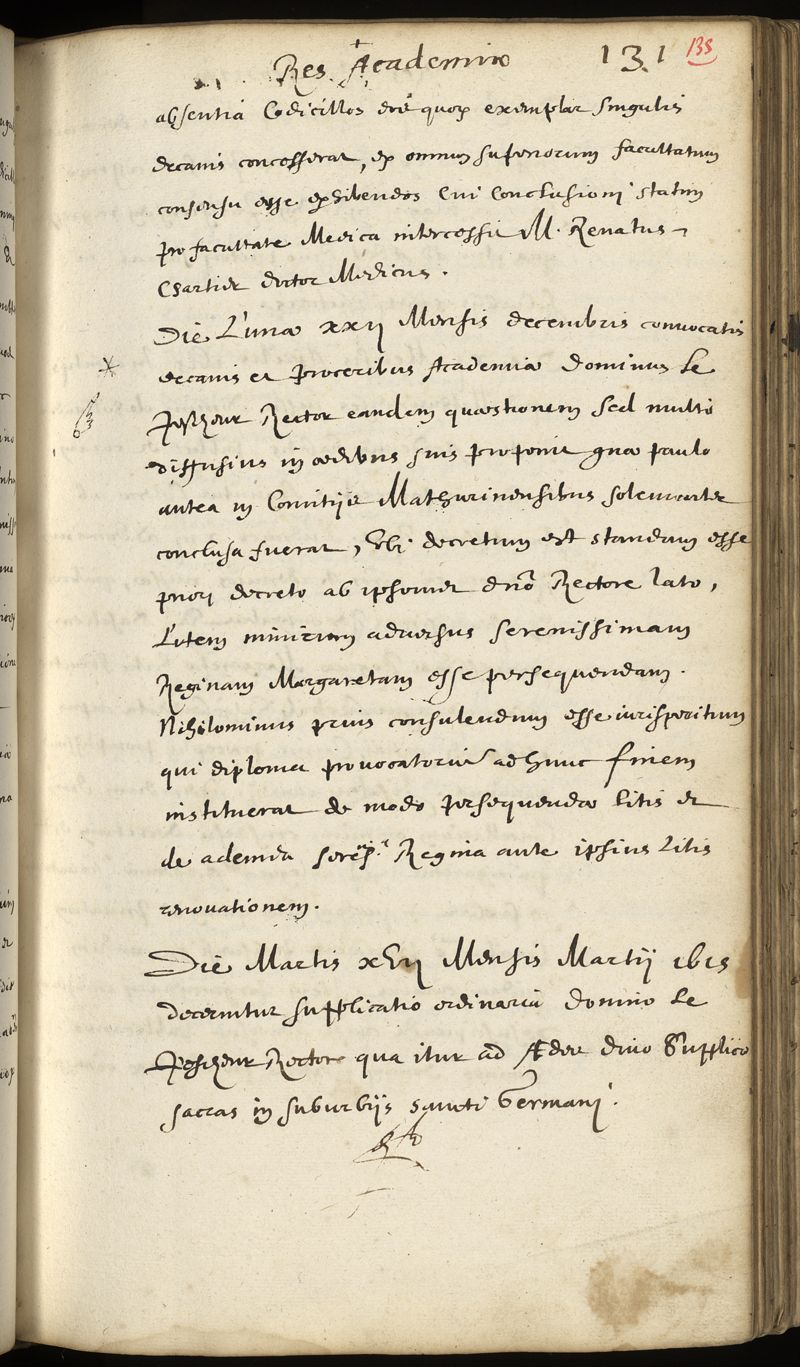 Res Academiæ 131 135
absentia Codicillos quorum exemplar singulis
decanis concesserat, ex omnium superiorum facultatum
consensu esse exhibendos Cui Conclusioni statim
pro facultate Medica intercessit M. Renatus
Chartier doctor Medicus.
Die Lunæ xxij Mensis decembris convocatis
decanis et proceribus Academiæ dominus Le
Rector eandem quæstionem sed multo
diffusius in ædibus suis proponit quæ paulo
antea in Comitijs Mathurinensibus solemniter
conclusa fuerat, Ubi decretum est standum esse
priori decreto ab ipsomet dno Rectore lato,
Litem nimirum adversus serenissimam
Reginam Margaretam esse persequendam.
Nihilominus prius consulendum esse iurisperitum
qui diploma provocatoriu ad hunc finem
instituerat de modo persequendæ litis et
de Regina ante ipsius Litis
renovationem.
Die Martis xvij Mensis Martij 1615
decernitur supplicatio ordinaria domino Le
Rectore qua itur ad Ædem divo Sulpitio
sacras in suburbijs sancti Germani.